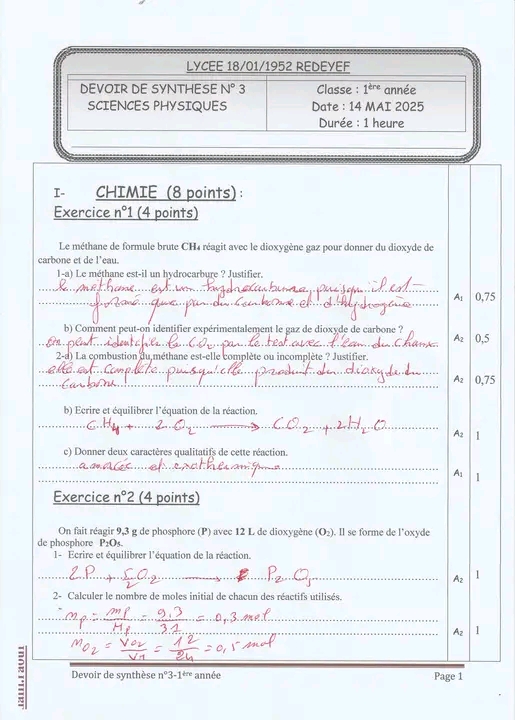 LYCEE 18/01/1952 REDEYEF
DEVOIR DE SYNTHESE N° 3
SCIENCES PHYSIQUES
Classe : 1ère année
Date : 14 MAI 2025
Durée : 1 heure
I- CHIMIE (8 points) :
Exercice n°1 (4 points)
Le méthane de formule brute CH₄ réagit avec le dioxygène gaz pour donner du dioxyde de
carbone et de l'eau.
1-a) Le méthane est-il un hydrocarbure ? Justifier.
le méthane est un hydrocarbure puisqu'il est
formé que par du carbone et d'hydrogène A₁ 0,75
b) Comment peut-on identifier expérimentalement le gaz de dioxyde de carbone ?
on peut identifier le CO₂ par le test avec l'eau du chaux A₂ 0,5
2-a) La combustion du méthane est-elle complète ou incomplète ? Justifier.
elle est complète puisqu'elle produit du dioxyde du
carbone A₂ 0,75
b) Ecrire et équilibrer l'équation de la réaction.
CH₄ + 2 O₂ → CO₂ + 2H₂O A₂ 1
c) Donner deux caractères qualitatifs de cette réaction.
et exothermique A₁ 1
Exercice n°2 (4 points)
On fait réagir 9,3 g de phosphore (P) avec 12 L de dioxygène (O₂). Il se forme de l'oxyde
de phosphore P₂O₅.
1- Ecrire et équilibrer l'équation de la réaction.
2P + 5/2 O₂ → P₂O₅ A₂ 1
2- Calculer le nombre de moles initial de chacun des réactifs utilisés.
np = mp/Mp = 9,3/31 = 0,3 mol
nO₂ = VO₂/VM = 12/24 = 0,5 mol A₂ 1
Devoir de synthèse n°3-1ère année Page 1